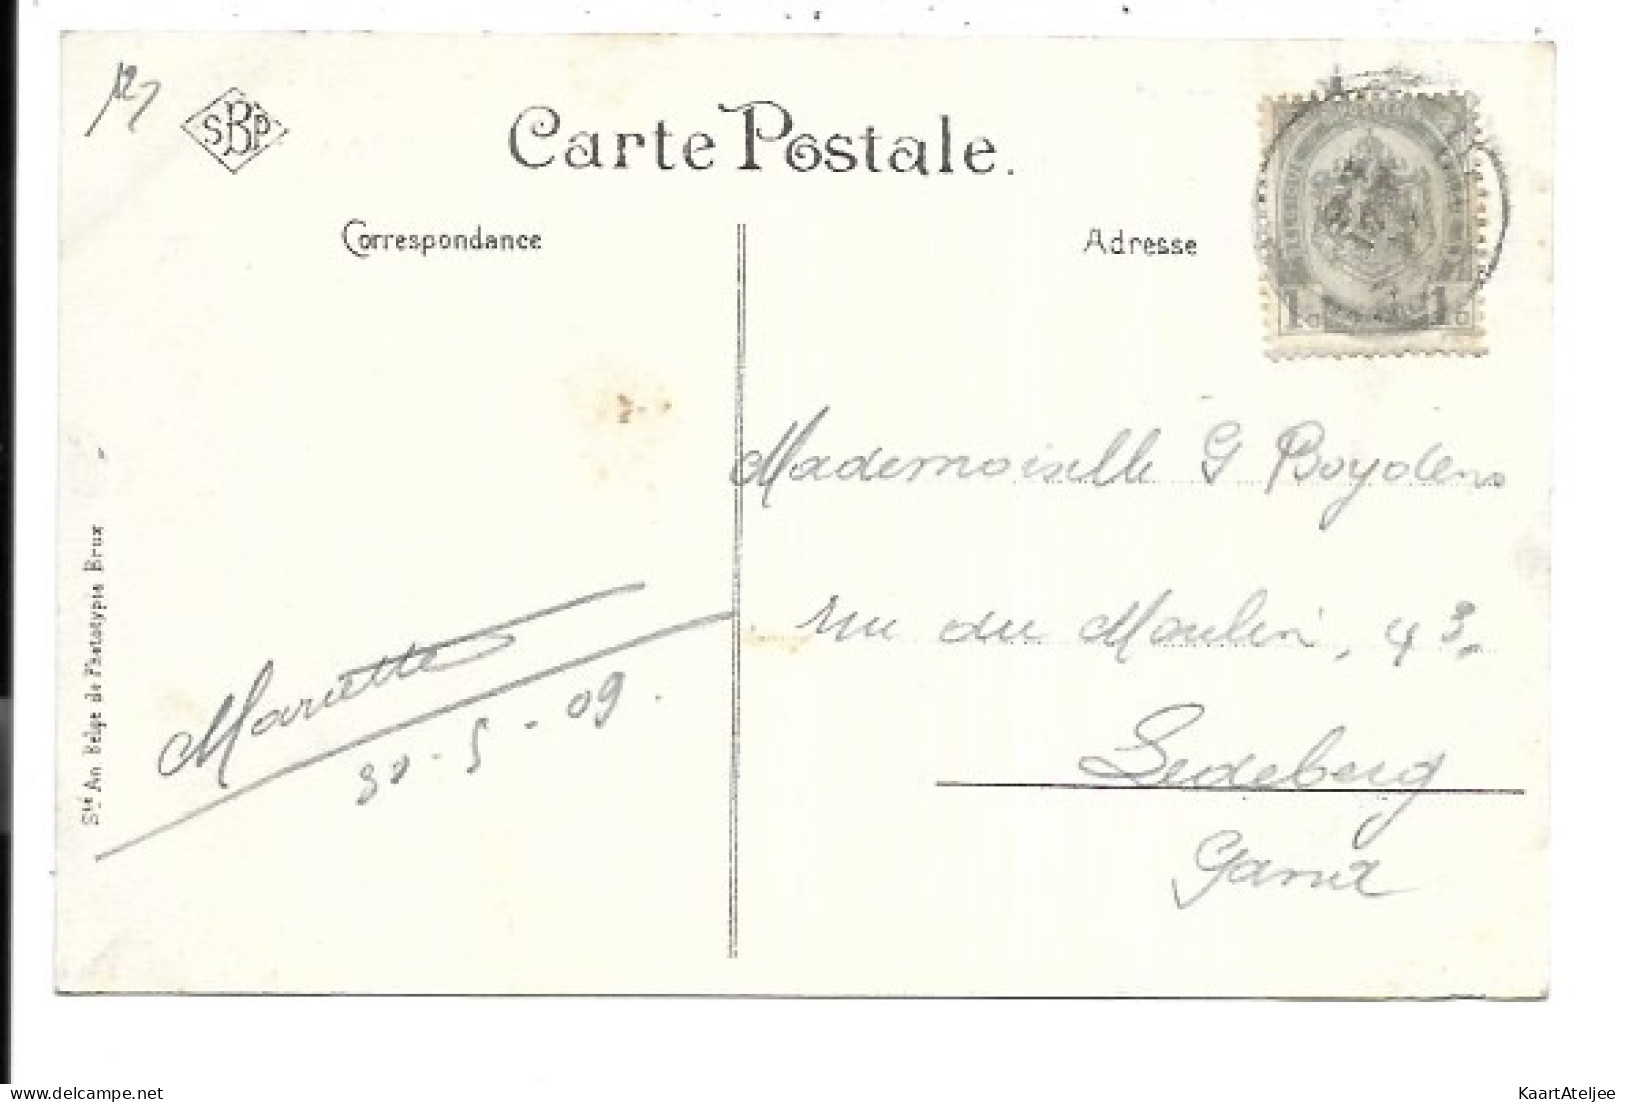 127
SBP
Carte Postale.
Correspondance
Adresse
1 1
Mademoiselle G Boydens
rue du Moulin, 43.
Ledeberg
Gand
Mariette
30-5-09.
Sté An Belge de Phototypie Brux
www.delcampe.net
KaartAteljee